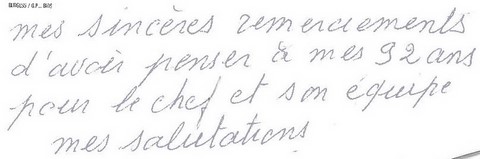 mes sincères remerciements
d'avoir penser à mes 92 ans
pour le chef et son équipe
mes salutations